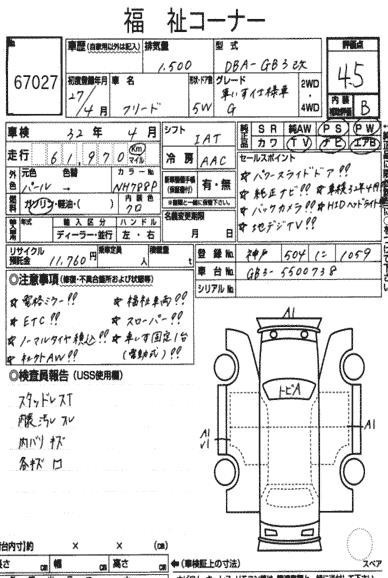 福祉コーナー
No.
67027
車歴(自家用以外は記入)
排気量
1.500
型式
DBA-GB3改
評価点
4.5
初度登録年月
27/4月
車名
フリード
形状・ドア数
5W
グレード
車いす仕様車
G
2WD
・
4WD
内装
補助評価
B
車検 32年4月
シフト
IAT
純正品
SR 純AW PS PW
カワ TV ナビ エアB
走行 61,970 Km マイル
冷房
AAC
セールスポイント
☆パワースライドドア!!
☆純正ナビ!! ☆車検32年4月
☆バックカメラ!! ☆HIDヘッドライト
☆地デジTV!!
外色
元色
パール→
色替
カラーNo.
NH788P
有・無
燃料
ガソリン・軽油・( )
内装色
クロ
名義変更期限
月 日
輸入区分
ディーラー・並行
ハンドル
左・右
リサイクル
預託金
11,760円
乗車定員
人
積載量
t
登録No. 神戸 504 に 1059
車台No. GB3-5500738
シリアルNo.
◎注意事項(修復・不具合箇所および状態等)
☆電格ミラー!! ☆福祉車両!!
☆ETC!! ☆スローパー!!
☆ノーマルタイヤ積込!! ☆車いす固定1台
☆社外AW!! (電動式)!!
◎検査員報告(USS使用欄)
スタッドレスT
内装汚レ スレ
内バリ キズ
各キズ
A1
トビA
A1
A1
A1
スペア
(荷台内寸)約 × × (cm)
長さ cm 幅 cm 高さ cm
←(車検証上の寸法)